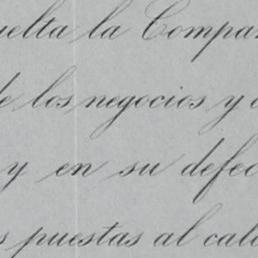 uelta la Compa
de los negocios y
y en su defec
s puestas al cal